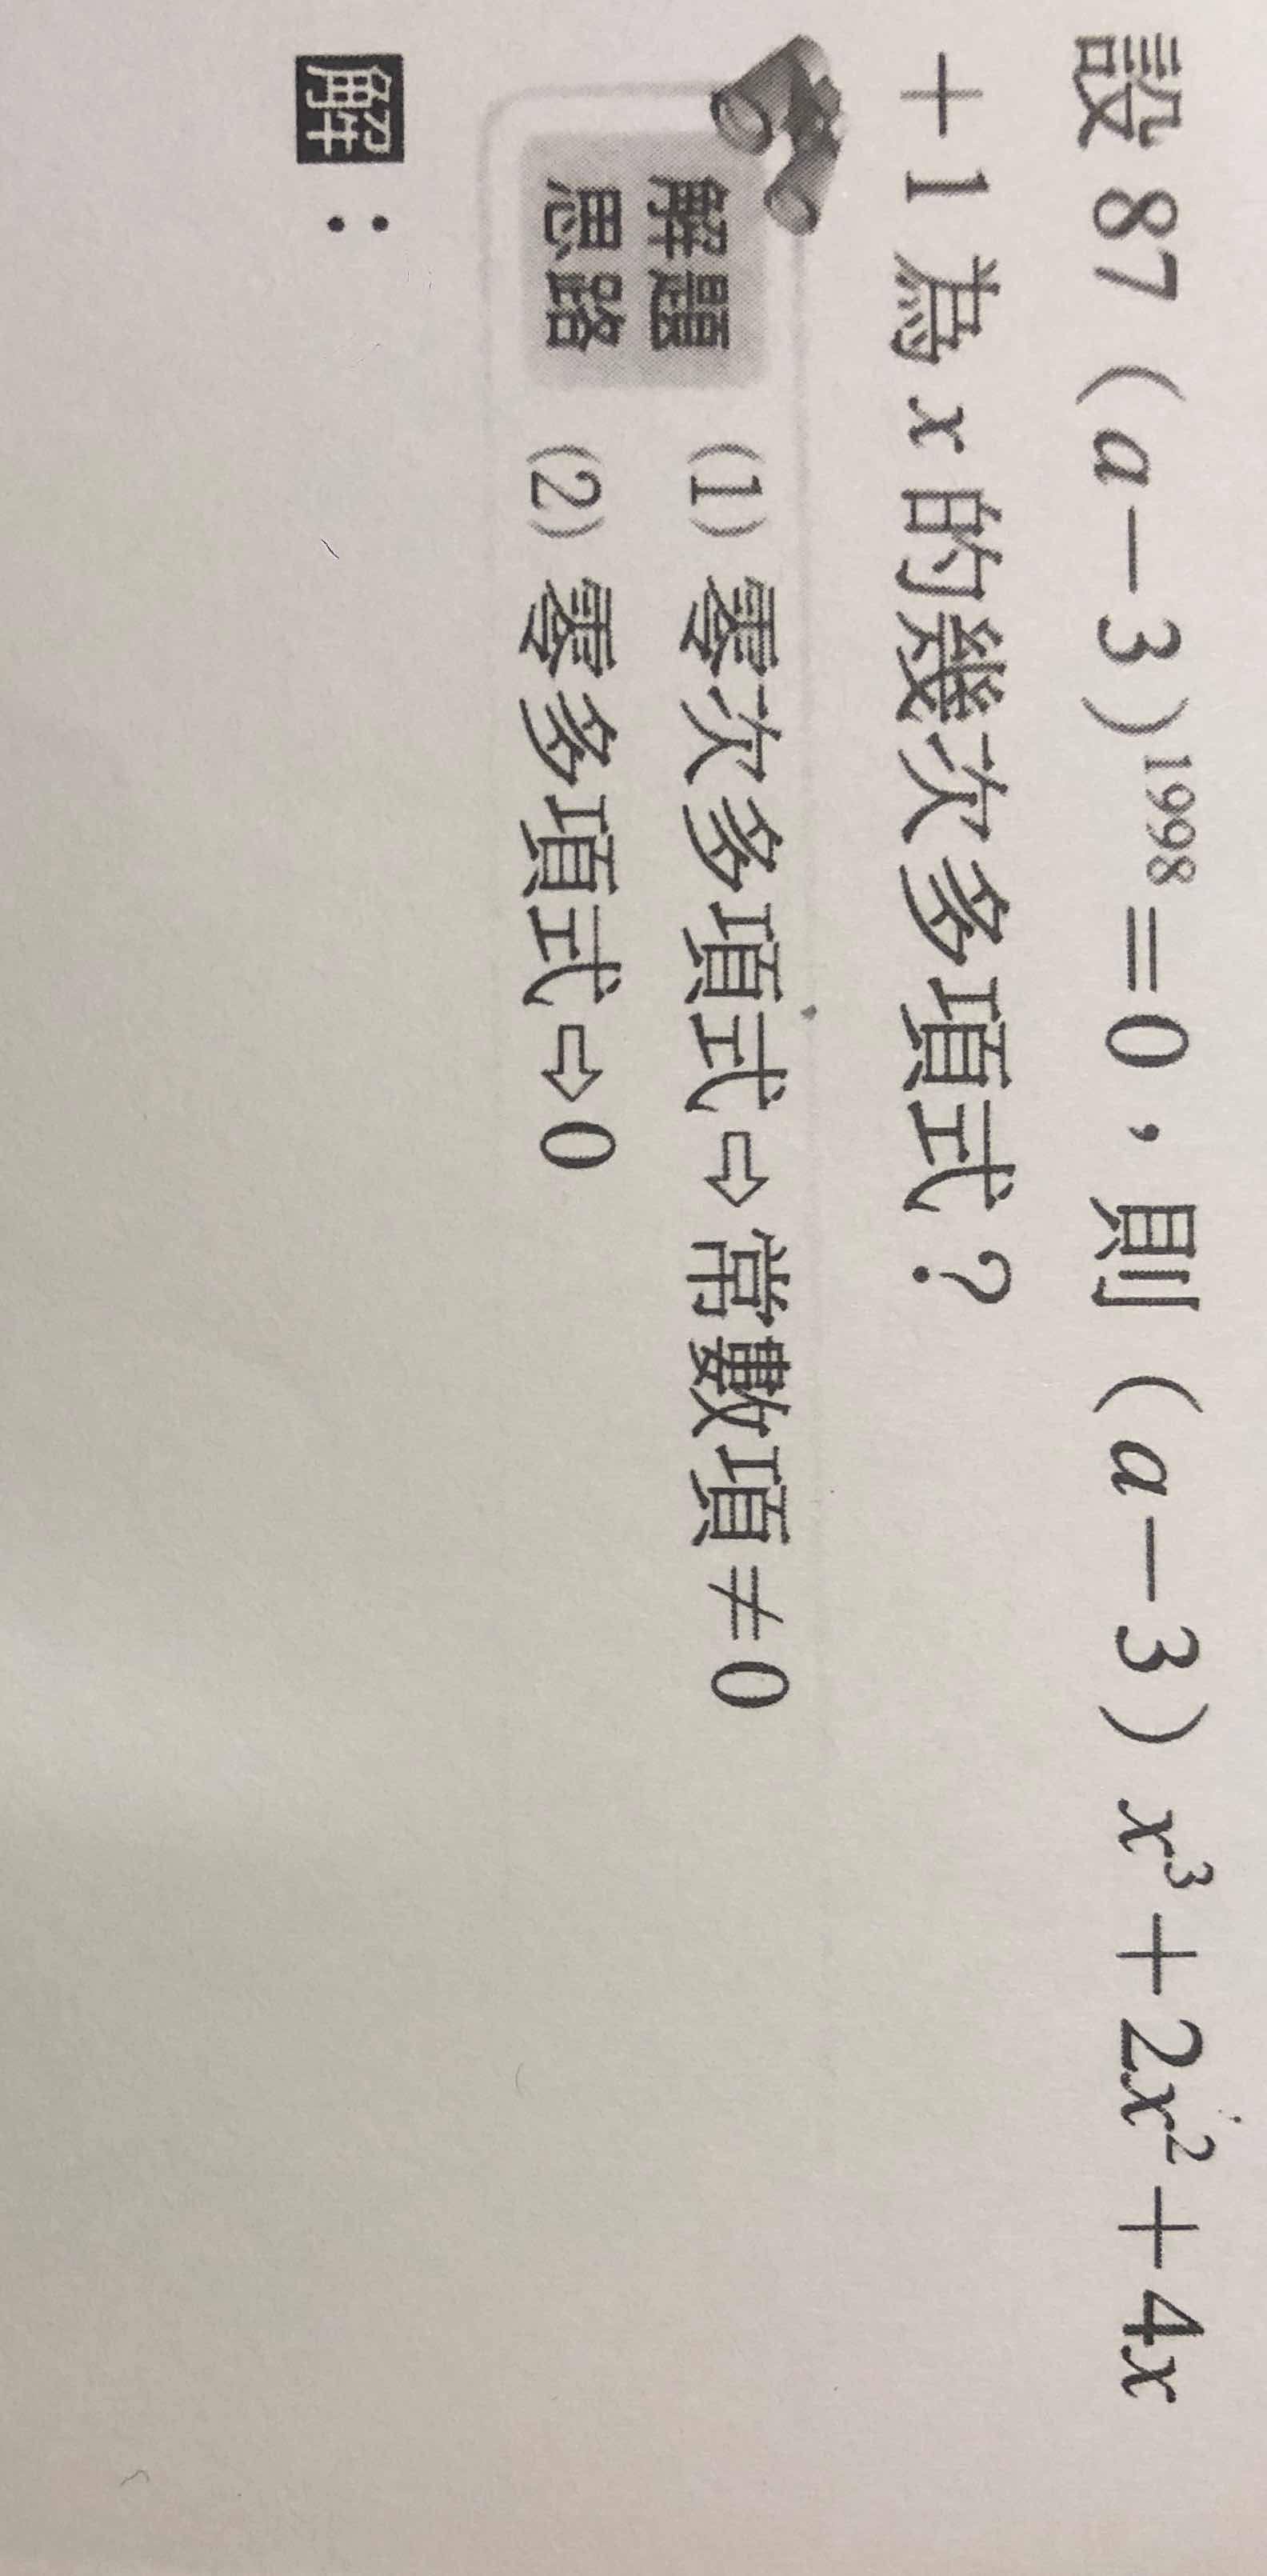 設 87（a－3）¹⁹⁹⁸＝0，則（a－3）x³＋2x²＋4x
＋1 為 x 的幾次多項式？
解題
思路
(1) 零次多項式⇨常數項≠0
(2) 零多項式⇨0
解：